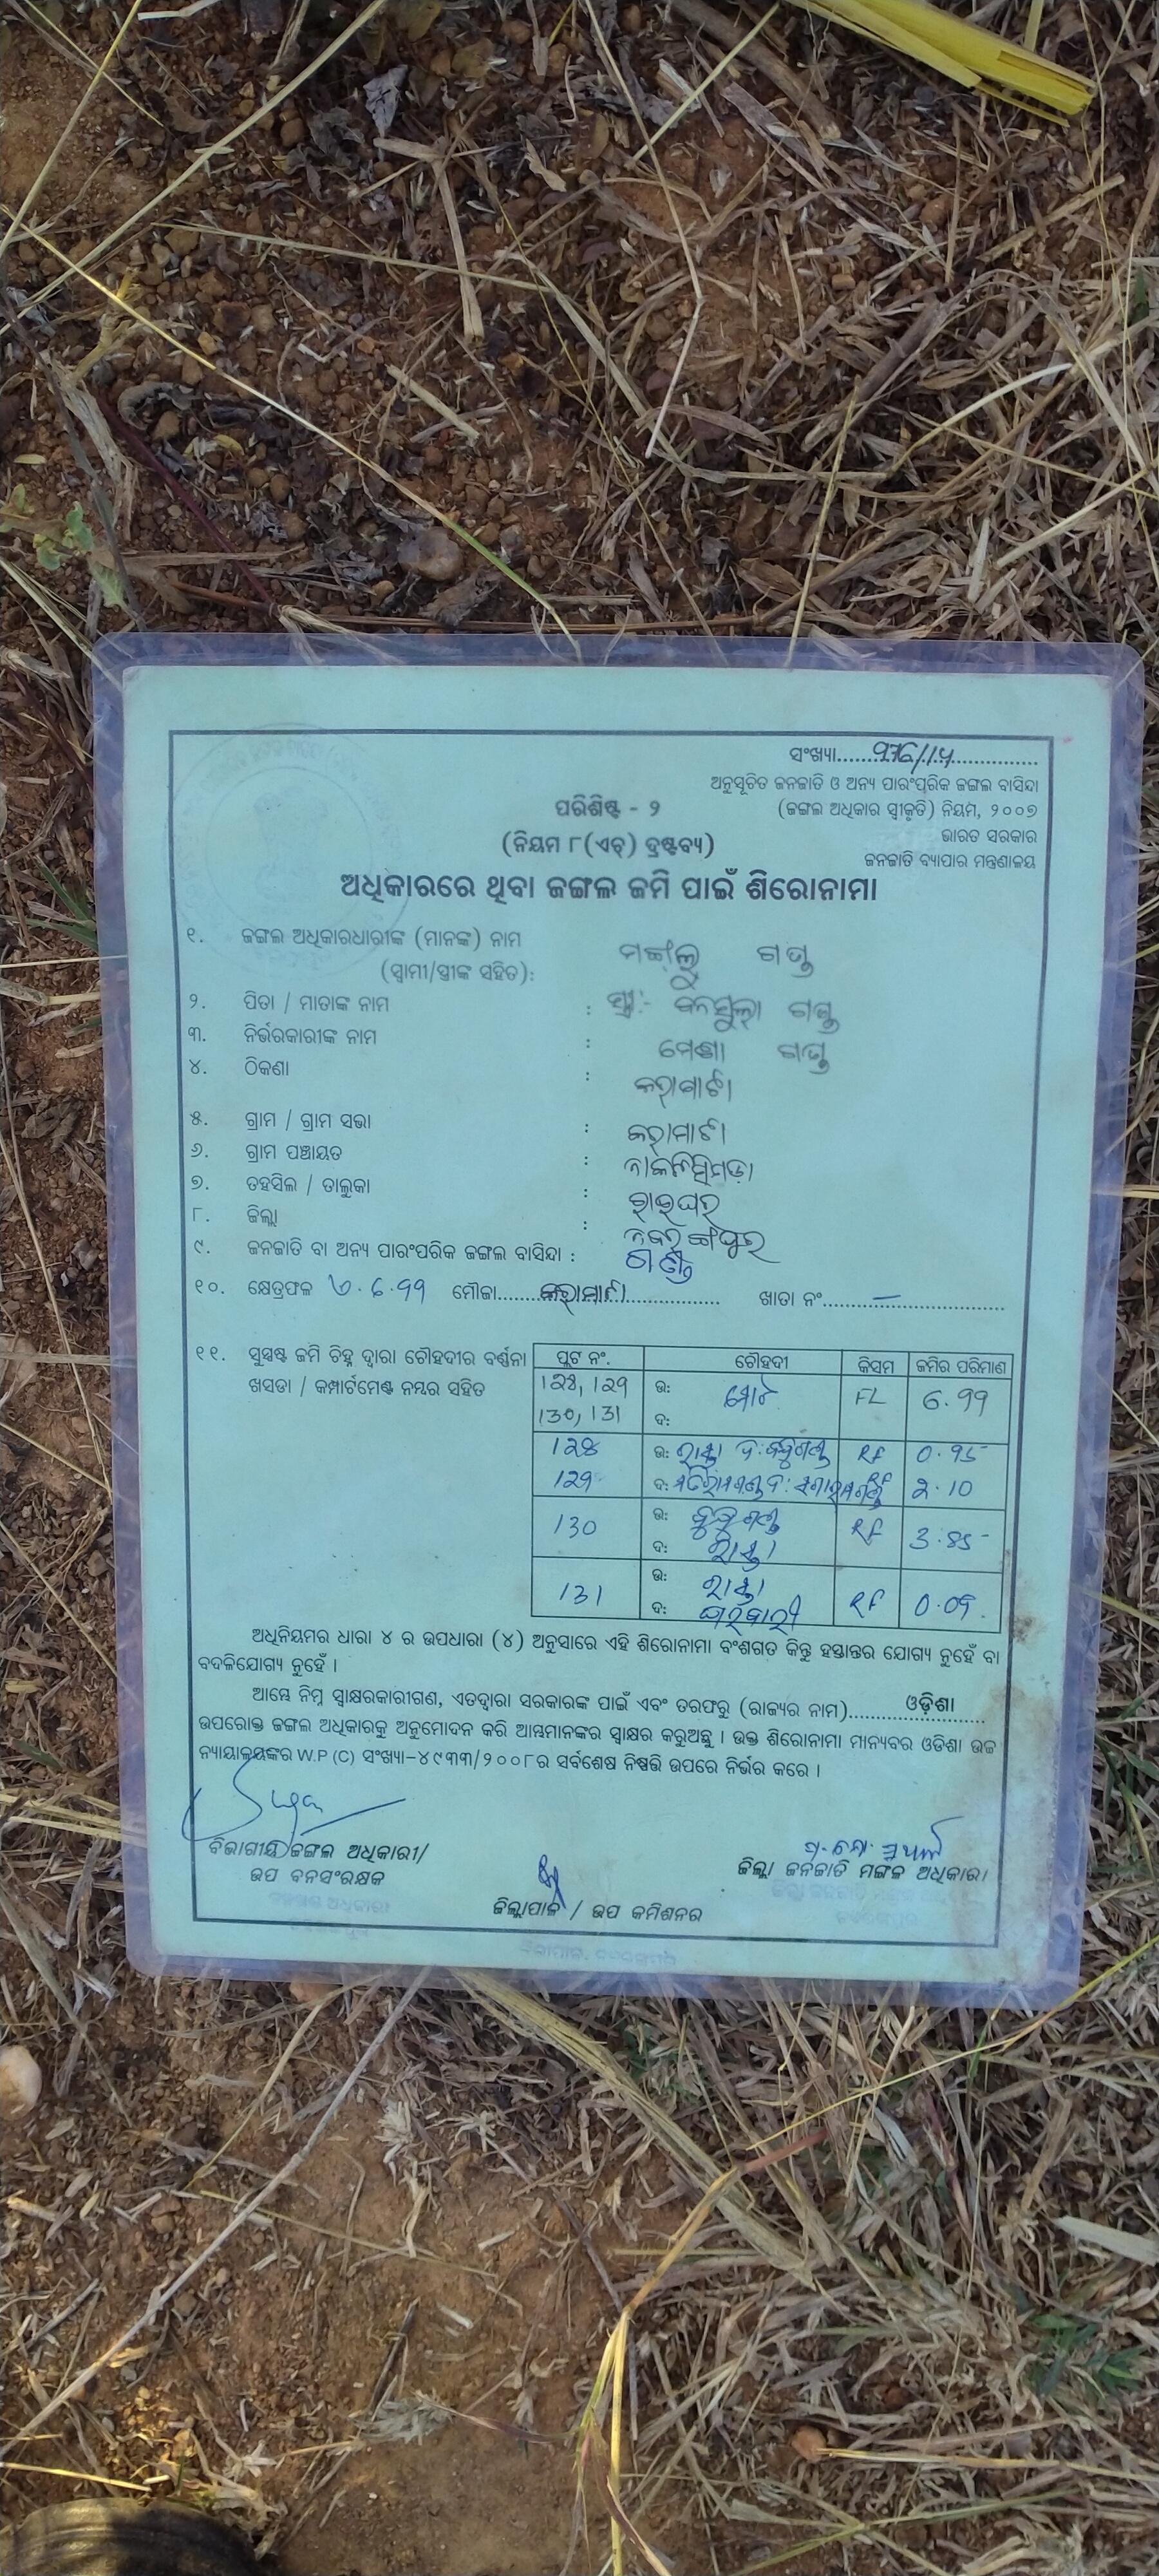 ସଂଖ୍ୟା..................
ଅନୁସୂଚିତ ଜନଜାତି ଓ ଅନ୍ୟ ପାରଂପରିକ ଜଙ୍ଗଲ ବାସିନ୍ଦା
(ଜଙ୍ଗଲ ଅଧିକାର ସ୍ୱୀକୃତି) ନିୟମ, ୨୦୦୭
ଭାରତ ସରକାର
ଜନଜାତି ବ୍ୟାପାର ମନ୍ତ୍ରଣାଳୟ
ପରିଶିଷ୍ଟ - ୨
(ନିୟମ ୮(ଏଚ୍) ଦ୍ରଷ୍ଟବ୍ୟ)
ଅଧିକାରରେ ଥିବା ଜଙ୍ଗଲ ଜମି ପାଇଁ ଶିରୋନାମା
୧. ଜଙ୍ଗଲ ଅଧିକାରଧାରୀଙ୍କ (ମାନଙ୍କ) ନାମ
(ସ୍ୱାମୀ/ସ୍ତ୍ରୀଙ୍କ ସହିତ):
୨. ପିତା / ମାତାଙ୍କ ନାମ :
୩. ନିର୍ଭରକାରୀଙ୍କ ନାମ :
୪. ଠିକଣା :
୫. ଗ୍ରାମ / ଗ୍ରାମ ସଭା : କରାମାଟୀ
୬. ଗ୍ରାମ ପଞ୍ଚାୟତ :
୭. ତହସିଲ / ତାଲୁକା : ରାଇଘର
୮. ଜିଲ୍ଲା : ନବରଙ୍ଗପୁର
୯. ଜନଜାତି ବା ଅନ୍ୟ ପାରଂପରିକ ଜଙ୍ଗଲ ବାସିନ୍ଦା : ଗଣ୍ଡ
୧୦. କ୍ଷେତ୍ରଫଳ ମୌଜା..... କରାମାଟୀ ............ ଖାତା ନଂ........–..........
୧୧. ସୁସ୍ପଷ୍ଟ ଜମି ଚିହ୍ନ ଦ୍ୱାରା ଚୌହଦୀର ବର୍ଣ୍ଣନା
ଖସଡା / କମ୍ପାର୍ଟମେଣ୍ଟ ନମ୍ବର ସହିତ
ପ୍ଲଟ ନଂ. ଚୌହଦୀ କିସମ ଜମିର ପରିମାଣ
128, 129 ଉ: ମୋଟ FL 6.99
130, 131 ଦ:
128 ଉ: ରାସ୍ତା RF 0.95
129 ଦ: RF 2.10
130 ଉ: RF 3.85
ଦ: ରାସ୍ତା
131 ଉ: ରାସ୍ତା RF 0.09
ଦ: ଘରବାରୀ
ଅଧିନିୟମର ଧାରା ୪ ର ଉପଧାରା (୪) ଅନୁସାରେ ଏହି ଶିରୋନାମା ବଂଶଗତ କିନ୍ତୁ ହସ୍ତାନ୍ତର ଯୋଗ୍ୟ ନୁହେଁ ବା
ବଦଳିଯୋଗ୍ୟ ନୁହେଁ ।
ଆମ୍ଭେ ନିମ୍ନ ସ୍ୱାକ୍ଷରକାରୀଗଣ, ଏତଦ୍ୱାରା ସରକାରଙ୍କ ପାଇଁ ଏବଂ ତରଫରୁ (ରାଜ୍ୟର ନାମ)........ ଓଡ଼ିଶା ......
ଉପରୋକ୍ତ ଜଙ୍ଗଲ ଅଧିକାରକୁ ଅନୁମୋଦନ କରି ଆମ୍ଭମାନଙ୍କର ସ୍ୱାକ୍ଷର କରୁଅଛୁ । ଉକ୍ତ ଶିରୋନାମା ମାନ୍ୟବର ଓଡିଶା ଉଚ୍ଚ
ନ୍ୟାୟାଳୟଙ୍କର W.P (C) ସଂଖ୍ୟା-୪୯୩୩/୨୦୦୮ର ସର୍ବଶେଷ ନିଷ୍ପତ୍ତି ଉପରେ ନିର୍ଭର କରେ ।
ବିଭାଗୀୟ ଜଙ୍ଗଲ ଅଧିକାରୀ/
ଉପ ବନସଂରକ୍ଷକ
ଜିଲ୍ଲା ଜନଜାତି ମଙ୍ଗଳ ଅଧିକାରୀ
ଜିଲ୍ଲାପାଳ / ଉପ କମିଶନର